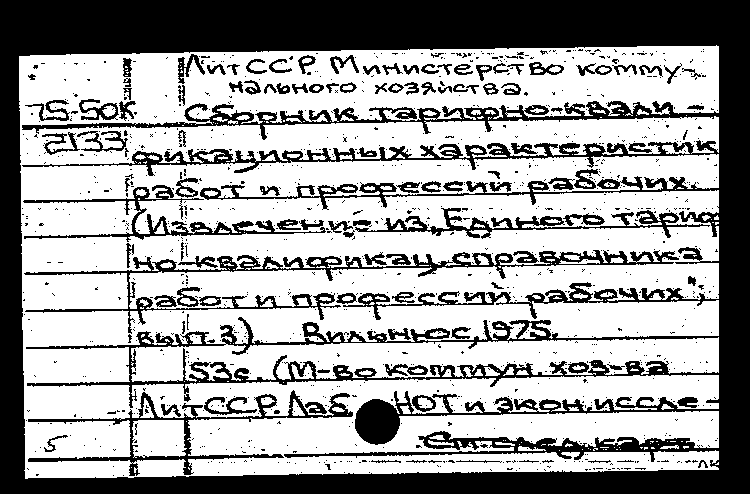 ЛитССР. Министерство комму-
нального хозяйства.
75-50К Сборник тарифно-квали-
2133 фикационных характеристик
работ и профессий рабочих.
(Извлечение из „Единого тариф
но-квалификац. справочника
работ и профессий рабочих";
вып. 3). Вильнюс, 1975.
53с. (М-во коммун. хоз-ва
ЛитССР. Лаб. НОТ и экон. иссле-
5 См. след. карт.